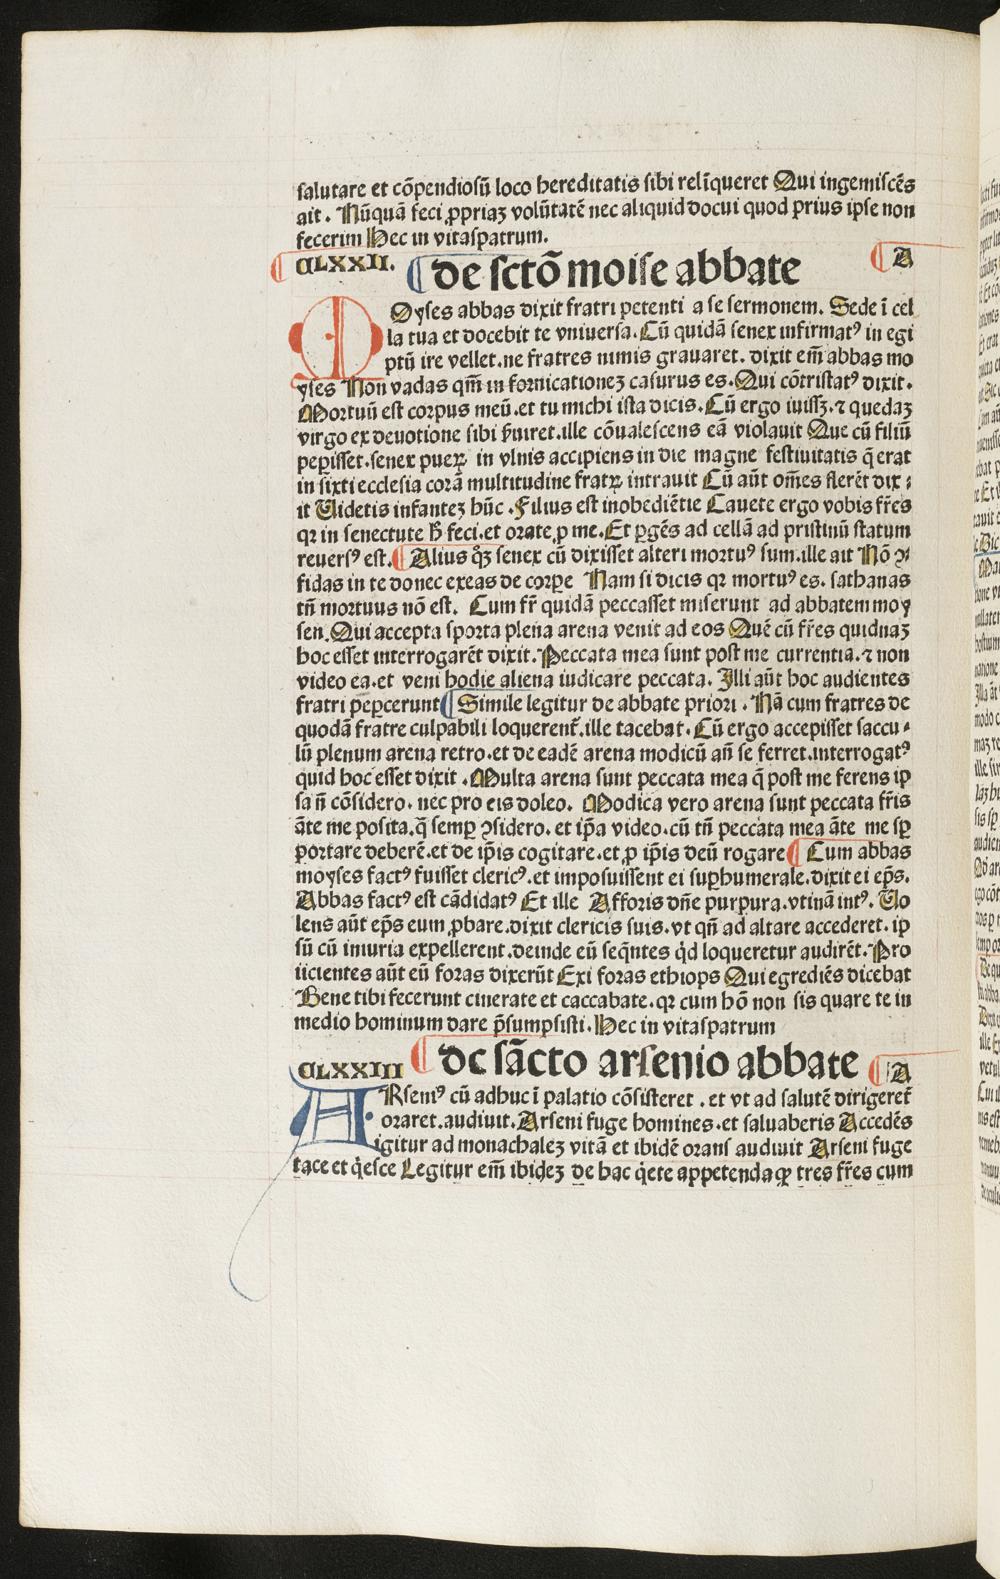 salutare et cōpendiosū loco hereditatis sibi relīqueret Qui ingemiscēs
ait. Nūquā feci ꝓpriaꝫ volūtatē nec aliquid docui quod prius ipse non
fecerim Hec in vitaspatrum.
CLXXII. de sctō moise abbate A
MOyses abbas dixit fratri petenti a se sermonem. Sede ī cel
la tua et docebit te vniuersa. Cū quidā senex infirmatꝰ in egi
ptū ire vellet. ne fratres nimis grauaret. dixit em̄ abbas mo
yses Non vadas qm̄ in fornicationeꝫ casurus es. Qui cōtristatꝰ dixit.
Mortuū est corpus meū. et tu michi ista dicis. Cū ergo iuissꝫ. ⁊ quedaꝫ
virgo ex deuotione sibi ẜuiret. ille cōualescens eā violauit Que cū filiū
peꝑisset. senex pueꝝ in vlnis accipiens in die magne festiuitatis q̄ erat
in sixti ecclesia corā multitudine fratꝝ intrauit Cū aūt om̄es flerēt dix⸗
it Uidetis infanteꝫ hūc. Filius est inobediētie Cauete ergo vobis fr̄es
qꝛ in senectute ħ feci. et orate ꝓ me. Et ꝑgēs ad cellā ad pristinū statum
reuersꝰ est. Alius qͦꝫ senex cū dixisset alteri mortuꝰ sum. ille ait Nō ꝯ⸗
fidas in te donec exeas de corꝑe Nam si dicis qꝛ mortuꝰ es. sathanas
tn̄ mortuus nō est. Cum fr̄ quidā peccasset miserunt ad abbatem moy
sen. Qui accepta sporta plena arena venit ad eos Quē cū fr̄es quidnaꝫ
hoc esset interrogarēt dixit. Peccata mea sunt post me currentia. ⁊ non
video ea. et veni hodie aliena iudicare peccata. Illi aūt hoc audientes
fratri peꝑcerunt Simile legitur de abbate priori. Nā cum fratres de
quodā fratre culpabili loquerent̄. ille tacebat. Cū ergo accepisset saccu⸗
lū plenum arena retro. et de eadē arena modicū an̄ se ferret. interrogatꝰ
quid hoc esset dixit. Multa arena sunt peccata mea q̄ post me ferens ip
sa n̄ cōsidero. nec pro eis doleo. Modica vero arena sunt peccata fr̄is
āte me posita. q̄ semꝑ ꝯsidero. et ip̄a video. cū tn̄ peccata mea āte me sꝑ
portare deberē. et de ip̄is cogitare. et ꝓ ip̄is deū rogare Cum abbas
moyses factꝰ fuisset clericꝰ. et imposuissent ei suꝑhumerale. dixit ei ep̄s.
Abbas factꝰ est cādidatꝰ Et ille Afforis dn̄e purpura. vtinā intꝰ. Uo
lens aūt ep̄s eum ꝓbare. dixit clericis suis. vt qn̄ ad altare accederet. ip
sū cū iniuria expellerent. deinde eū seq̄ntes qͥd loqueretur audirēt. Pro
iicientes aūt eū foras dixerūt Exi foras ethiops Qui egrediēs dicebat
Bene tibi fecerunt cinerate et caccabate. qꝛ cum hō non sis quare te in
medio hominum dare p̄sumpsisti. Hec in vitaspatrum
CLXXIII de sācto arsenio abbate A
ARseniꝰ cū adhuc ī palatio cōsisteret. et vt ad salutē dirigeret̄
oraret. audiuit. Arseni fuge homines. et saluaberis Accedēs
igitur ad monachaleꝫ vitā et ibidē orans audiuit Arseni fuge
tace et qͥesce Legitur em̄ ibideꝫ de hac qͥete appetenda ꝙ tres fr̄es cum